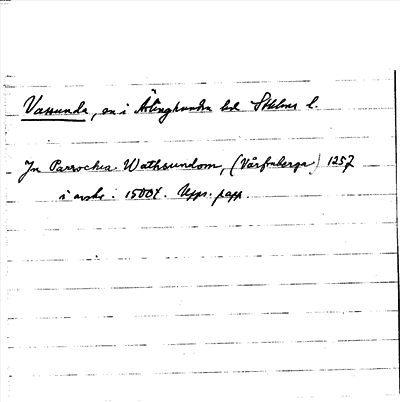 Vassunda, sn i Ärlinghundra hd Sthlms l.
In Parrochia Wathsundom, (Vårfruberga) 1257
i avskr. i 1500t. Upps. papp.